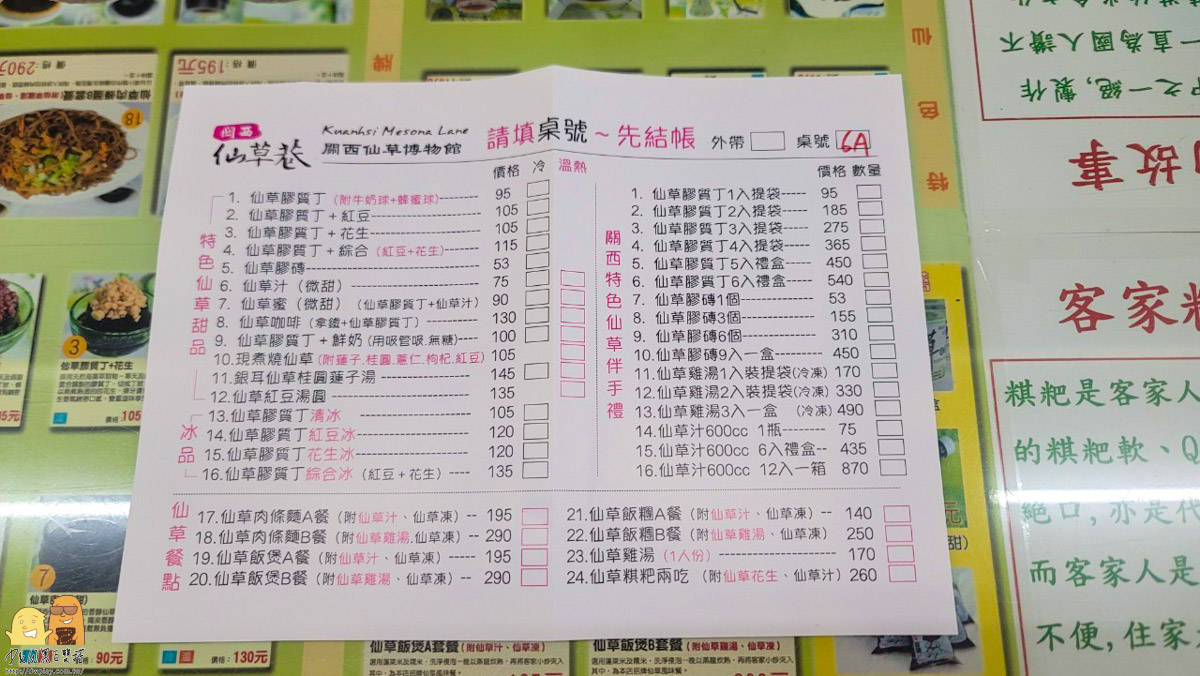 關西
仙草巷
Kuanhsi Mesona Lane
關西仙草博物館
請填桌號~先結帳
外帶
桌號 6A
價格 冷 溫熱
特色仙草甜品
1. 仙草膠質丁 (附牛奶球+蜂蜜球)------- 95
2. 仙草膠質丁+紅豆---------------- 105
3. 仙草膠質丁+花生---------------- 105
4. 仙草膠質丁+綜合 (紅豆+花生)------- 115
5. 仙草膠磚------------------------- 53
6. 仙草汁 (微甜) ------------------- 75
7. 仙草蜜 (微甜) (仙草膠質丁+仙草汁) 90
8. 仙草咖啡 (拿鐵+仙草膠質丁) ---------- 130
9. 仙草膠質丁+鮮奶 (用吸管吸.無糖)---- 100
10.現煮燒仙草 (附蓮子.桂圓.薏仁.枸杞.紅豆) 105
11.銀耳仙草桂圓蓮子湯 ------------- 145
12.仙草紅豆湯圓 135
冰品
13.仙草膠質丁清冰 ---------------- 105
14.仙草膠質丁紅豆冰---------------- 120
15.仙草膠質丁花生冰---------------- 120
16.仙草膠質丁綜合冰 (紅豆+花生) ---- 135
價格 數量
關西特色仙草伴手禮
1. 仙草膠質丁1入提袋----- 95
2. 仙草膠質丁2入提袋----- 185
3. 仙草膠質丁3入提袋----- 275
4. 仙草膠質丁4入提袋----- 365
5. 仙草膠質丁5入禮盒----- 450
6. 仙草膠質丁6入禮盒----- 540
7. 仙草膠磚1個----------- 53
8. 仙草膠磚3個----------- 155
9. 仙草膠磚6個----------- 310
10.仙草膠磚9入一盒-------- 450
11.仙草雞湯1入裝提袋(冷凍) 170
12.仙草雞湯2入裝提袋(冷凍) 330
13.仙草雞湯3入一盒 (冷凍) 490
14.仙草汁600cc 1瓶-------- 75
15.仙草汁600cc 6入禮盒-- 435
16.仙草汁600cc 12入一箱 870
仙草餐點
17.仙草肉條麵A餐 (附仙草汁、仙草凍) -- 195
18.仙草肉條麵B餐 (附仙草雞湯.仙草凍) -- 290
19.仙草飯煲A餐 (附仙草汁、仙草凍) ----- 195
20.仙草飯煲B餐 (附仙草雞湯、仙草凍) -- 290
21.仙草飯糰A餐 (附仙草汁、仙草凍) -- 140
22.仙草飯糰B餐 (附仙草雞湯、仙草凍) 250
23.仙草雞湯 (1人份) ------------------ 170
24.仙草粄粑兩吃 (附仙草花生、仙草汁) 260
價格:290元
價格:195元
18
牌
仙
色
特
3
仙草膠質丁+花生
價格:105
7
價格:90元
價格:130元
仙草飯煲A套餐(附仙草汁、仙草凍)
仙草飯煲B套餐(附仙草雞湯、仙草凍)
一直為國人讚不
之一絕,製作
故事
客家粄
粄粑是客家人
的粄粑軟、Q
絕口,亦是代
而客家人是
不便,住家
http://dwplay.com.tw/